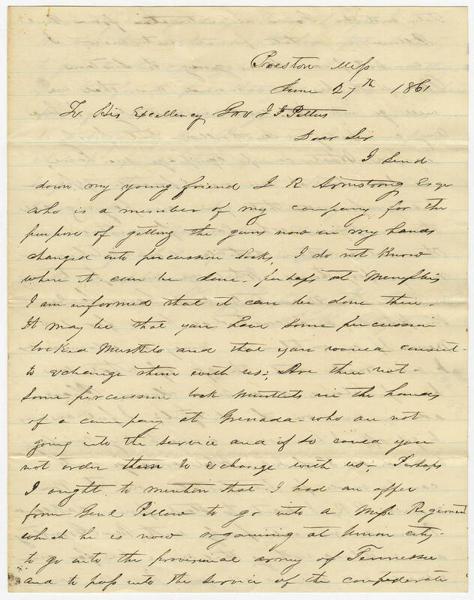 Preston Miss
June 27th 1861
To His Excellency Gov J J Pettus
Dear Sir
I send
down my young friend J R Armstrong Esqr
who is a member of my company for the
purpose of getting the guns now in my hands
changed into percussion locks, I do not know
where it can be done, perhaps at Memphis
I am informed that it can be done there.
It may be that you have some percussion
locked Musketts and that you would consent
to exchange them with us; Are there not
some percussion lock muskets in the hands
of a company at Grenada - who are not
going into the service and if so could you
not order them to exchange with us - Perhaps
I ought to mention that I had an offer
from Genl Pillow to go into a Miss Regiment
which he is now organising at Union City
to go into the provisional army of Tennessee
and to pass into the service of the confederate